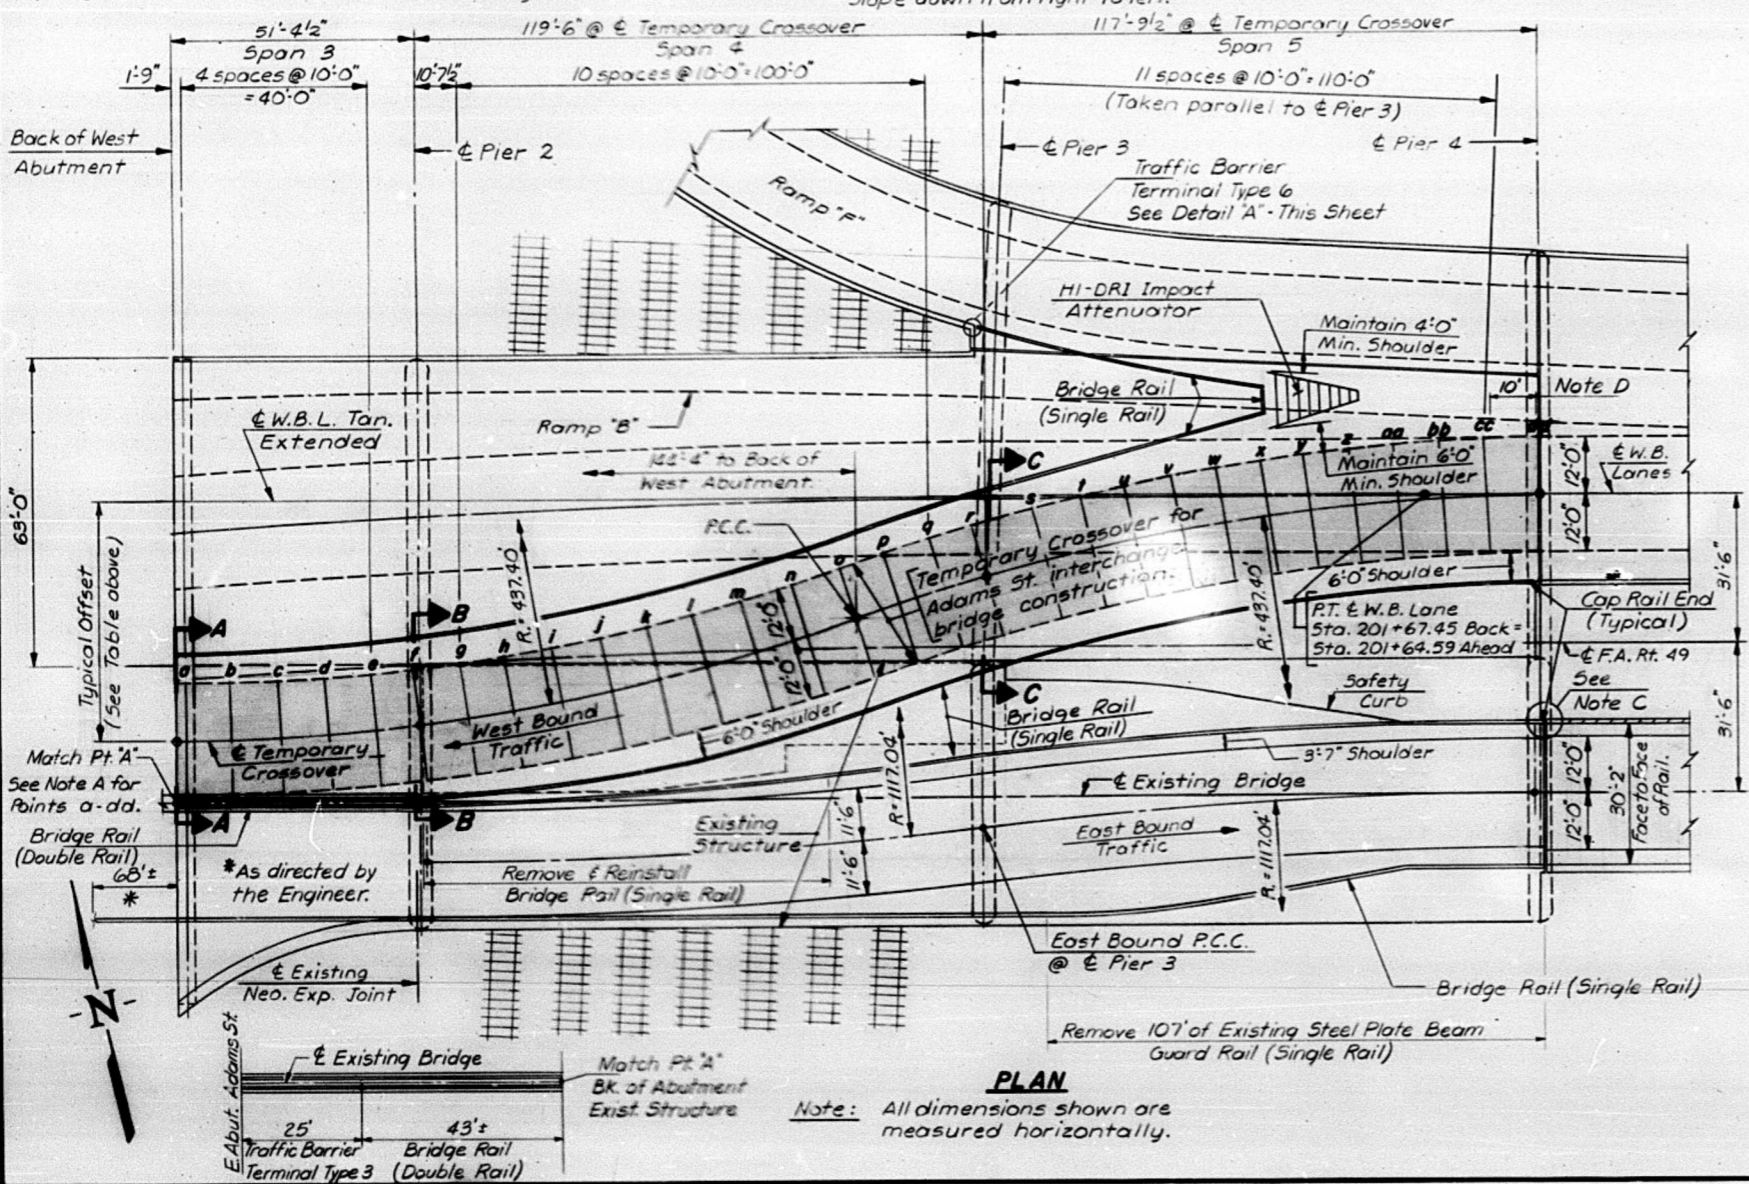 Slope down from right to left.
51'-4½"
Span 3
119'-6" @ ℄ Temporary Crossover
Span 4
117'-9½" @ ℄ Temporary Crossover
Span 5
1'-9"
4 spaces @ 10'-0"
=40'-0"
10'-7½"
10 spaces @ 10'-0"=100'-0"
11 spaces @ 10'-0"=110'-0"
(Taken parallel to ℄ Pier 3)
Back of West
Abutment
℄ Pier 2
℄ Pier 3
℄ Pier 4
Traffic Barrier
Terminal Type 6
See Detail "A" - This Sheet
Ramp "F"
HI-DRI Impact
Attenuator
Maintain 4'-0"
Min. Shoulder
Bridge Rail
(Single Rail)
10'
Note D
℄ W.B.L. Tan.
Extended
Ramp "B"
144'-4" to Back of
West Abutment
C
Maintain 6'-0"
Min. Shoulder
12'-0"
12'-0"
℄ W.B.
Lanes
63'-0"
Typical Offset
(See Table above)
R.=437.40'
P.C.C.
Temporary Crossover for
Adams St. interchange
bridge construction.
R.=437.40'
6'-0" Shoulder
31'-6"
31'-6"
P.T. ℄ W.B. Lane
Sta. 201+67.45 Back =
Sta. 201+64.59 Ahead
Cap Rail End
(Typical)
℄ F.A. Rt. 49
See
Note C
A
B
a b c d e f g h i j k l m n o p q r s t u v w x y z aa bb cc dd
12'-0"
12'-0"
West Bound
Traffic
6'-0" Shoulder
C
Bridge Rail
(Single Rail)
Safety
Curb
3'-7" Shoulder
℄ Temporary
Crossover
Match Pt. "A"
See Note A for
Points a-dd.
Bridge Rail
(Double Rail)
A
B
68'±
*
*As directed by
the Engineer.
℄ Existing Bridge
R=1117.04'
R.=1117.04'
11'-6"
11'-6"
Existing
Structure
East Bound
Traffic
12'-0"
12'-0"
30'-2"
Face to Face
of Rail.
Remove & Reinstall
Bridge Rail (Single Rail)
East Bound P.C.C.
@ ℄ Pier 3
Bridge Rail (Single Rail)
℄ Existing
Neo. Exp. Joint
N
Remove 107' of Existing Steel Plate Beam
Guard Rail (Single Rail)
E. Abut. Adams St.
℄ Existing Bridge
Match Pt. "A"
BK. of Abutment
Exist. Structure
25'
Traffic Barrier
Terminal Type 3
43'±
Bridge Rail
(Double Rail)
PLAN
Note: All dimensions shown are
measured horizontally.